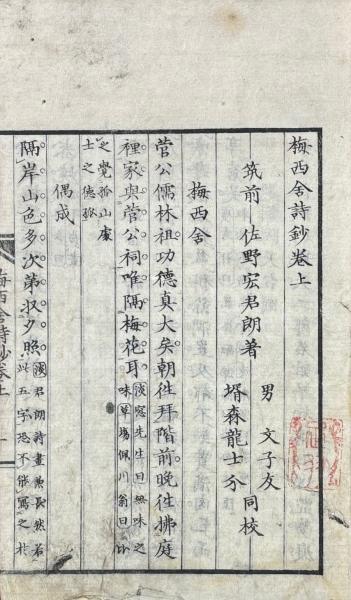 梅西舍詩鈔卷上
筑前 佐野宏君朗著
男 文子友
壻森龍士分 同校
梅西舍
菅公儒林祖功德真大矣朝徃拜階前晚徃拂庭
裡家與菅公祠唯隔梅花耳
淡窓先生曰無味之
味草場佩川翁曰比
之覺孤山處
士之德孤
偶成
隔岸山色多次第收夕照
國君朗詩畫兼長然若
此五字恐不能寫之
梅西舍詩鈔卷上